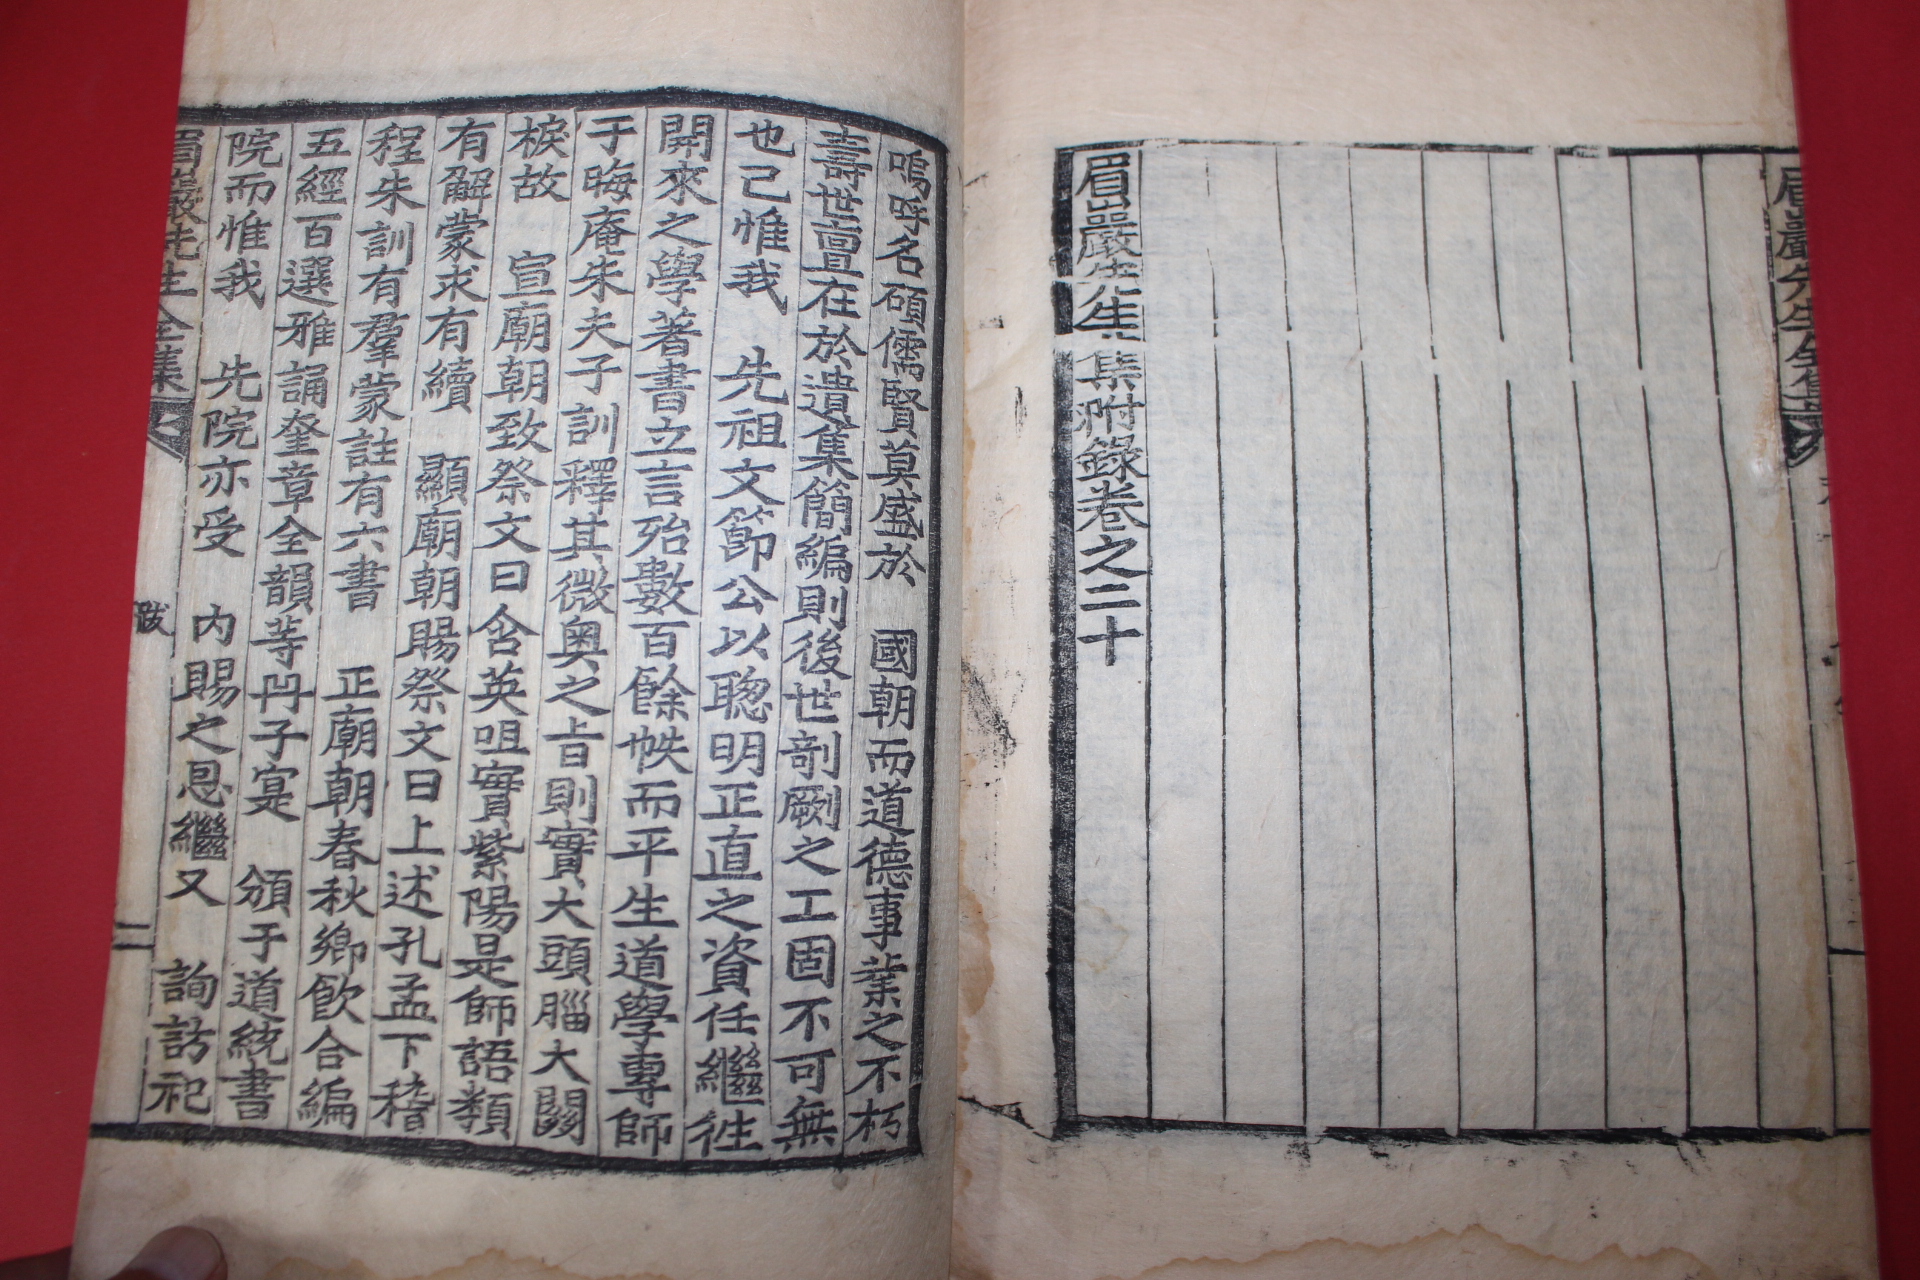 眉巖先生全集
眉巖先生集附錄卷之二十
嗚呼名碩儒賢莫盛於 國朝而道德事業之不朽
壽世亶在於遺集簡編則後世剞劂之工固不可無
也己惟我 先祖文節公以聰明正直之資任繼徃
開來之學著書立言殆數百餘帙而平生道學專師
于晦庵朱夫子訓釋其微奧之旨則實大頭腦大關
棙故 宣廟朝致祭文曰含英咀實紫陽是師語類
有解蒙求有續 顯廟朝賜祭文曰上述孔孟下稽
程朱訓有羣蒙註有六書 正廟朝春秋鄕飮合編
五經百選雅誦奎章全韻等冊子寔 頒于道統書
院而惟我 先院亦受 內賜之恩繼又 詢訪祀
眉巖先生全集 跋 二